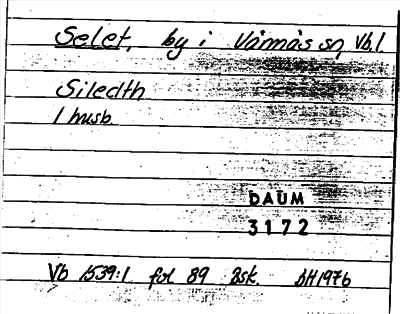 Selet, by i Vännäs sn, Vb.l.
Siledth
1 husb
DAUM
3172
Vb 1539:1 fol 89 Bsk. BH1976